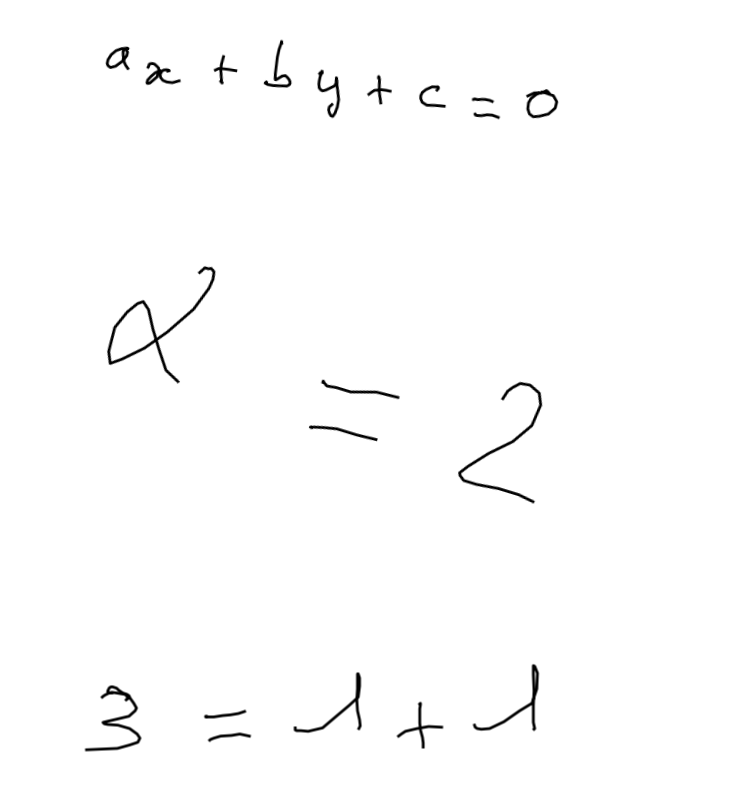 ax + by + c = 0
α = 2
3 = 1 + 1